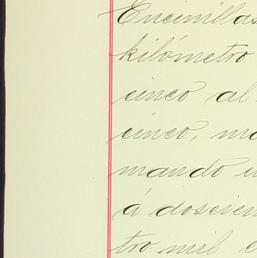 Encinillas
kilómetro
cinco al
cinco, ma
mando u
á doscien
tro mil c